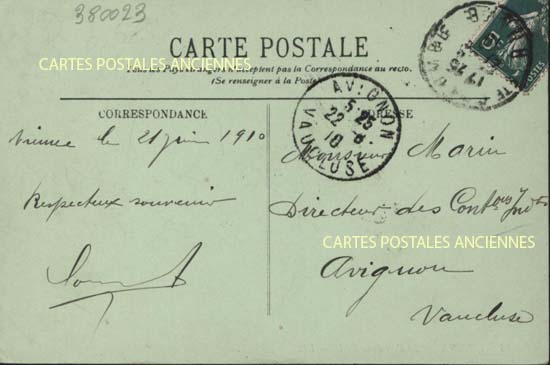 380023
CARTE POSTALE
CARTES POSTALES ANCIENNES
Tous les Pays étrangers n'acceptent pas la Correspondance au recto.
(Se renseigner à la Poste)
CORRESPONDANCE
ADRESSE
AVIGNON
5·25
22 - 6
10
VAUCLUSE
Vienne le 21 juin 1910
Respectueux souvenir
Monsieur Marin
Directeur des Cont^ons Ind^tes
CARTES POSTALES ANCIENNES
Avignon
Vaucluse